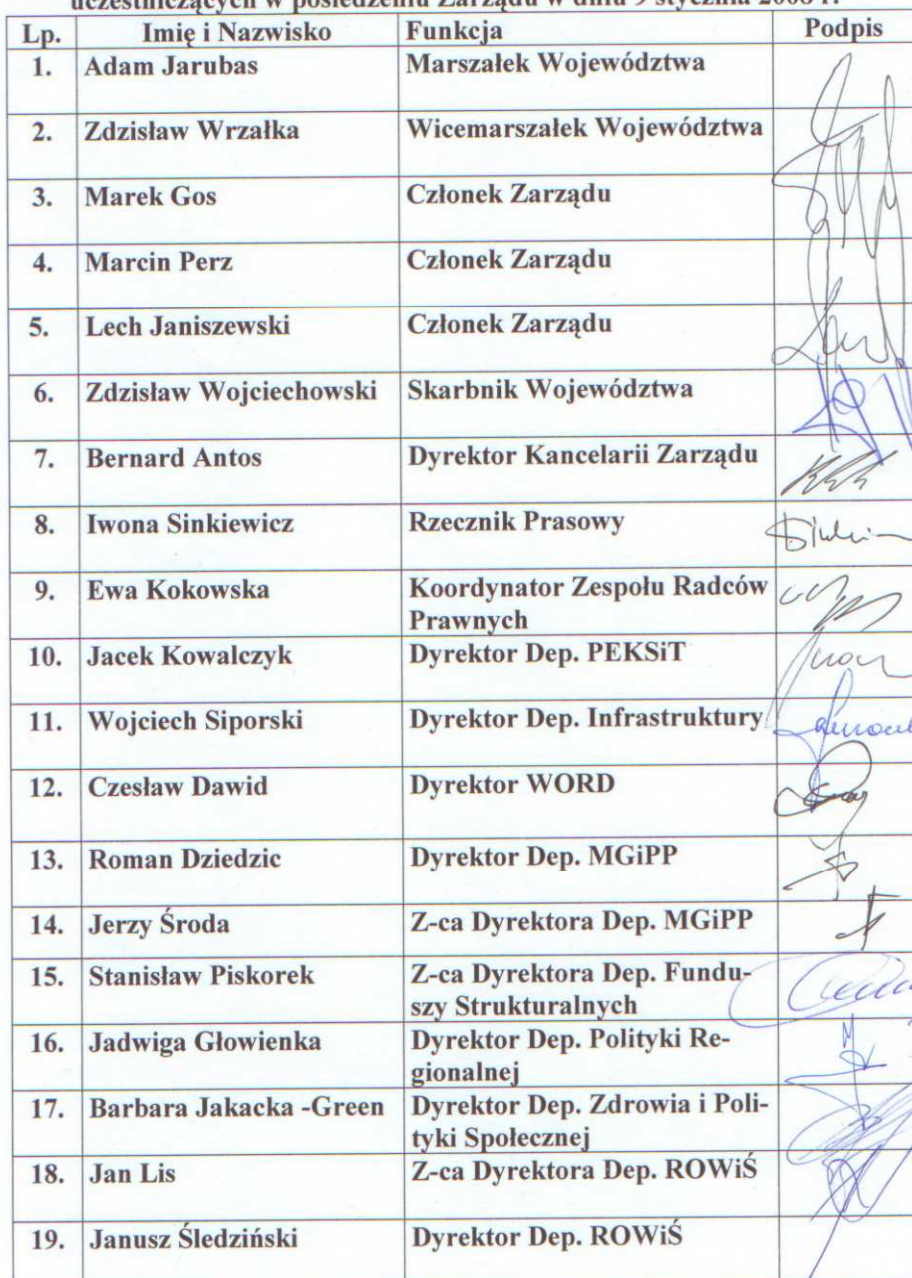 uczestniczących w posiedzeniu Zarządu w dniu 9 stycznia 2008 r.
Lp. Imię i Nazwisko Funkcja Podpis
1. Adam Jarubas Marszałek Województwa
2. Zdzisław Wrzałka Wicemarszałek Województwa
3. Marek Gos Członek Zarządu
4. Marcin Perz Członek Zarządu
5. Lech Janiszewski Członek Zarządu
6. Zdzisław Wojciechowski Skarbnik Województwa
7. Bernard Antos Dyrektor Kancelarii Zarządu
8. Iwona Sinkiewicz Rzecznik Prasowy
9. Ewa Kokowska Koordynator Zespołu Radców
Prawnych
10. Jacek Kowalczyk Dyrektor Dep. PEKSiT
11. Wojciech Siporski Dyrektor Dep. Infrastruktury
12. Czesław Dawid Dyrektor WORD
13. Roman Dziedzic Dyrektor Dep. MGiPP
14. Jerzy Środa Z-ca Dyrektora Dep. MGiPP
15. Stanisław Piskorek Z-ca Dyrektora Dep. Fundu-
szy Strukturalnych
16. Jadwiga Głowienka Dyrektor Dep. Polityki Re-
gionalnej
17. Barbara Jakacka -Green Dyrektor Dep. Zdrowia i Poli-
tyki Społecznej
18. Jan Lis Z-ca Dyrektora Dep. ROWiŚ
19. Janusz Śledziński Dyrektor Dep. ROWiŚ